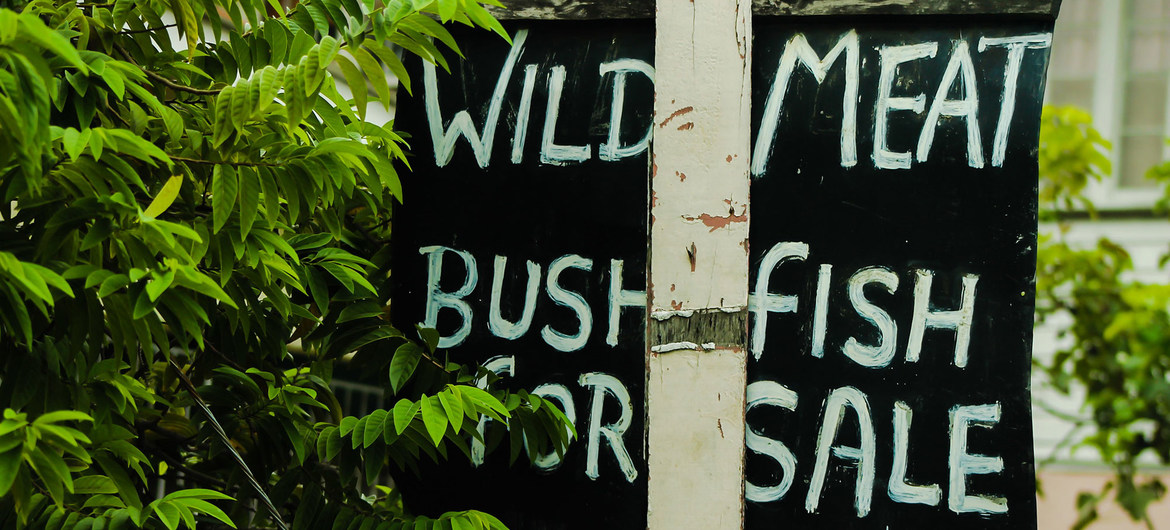 WILD MEAT
BUSH FISH
FOR SALE